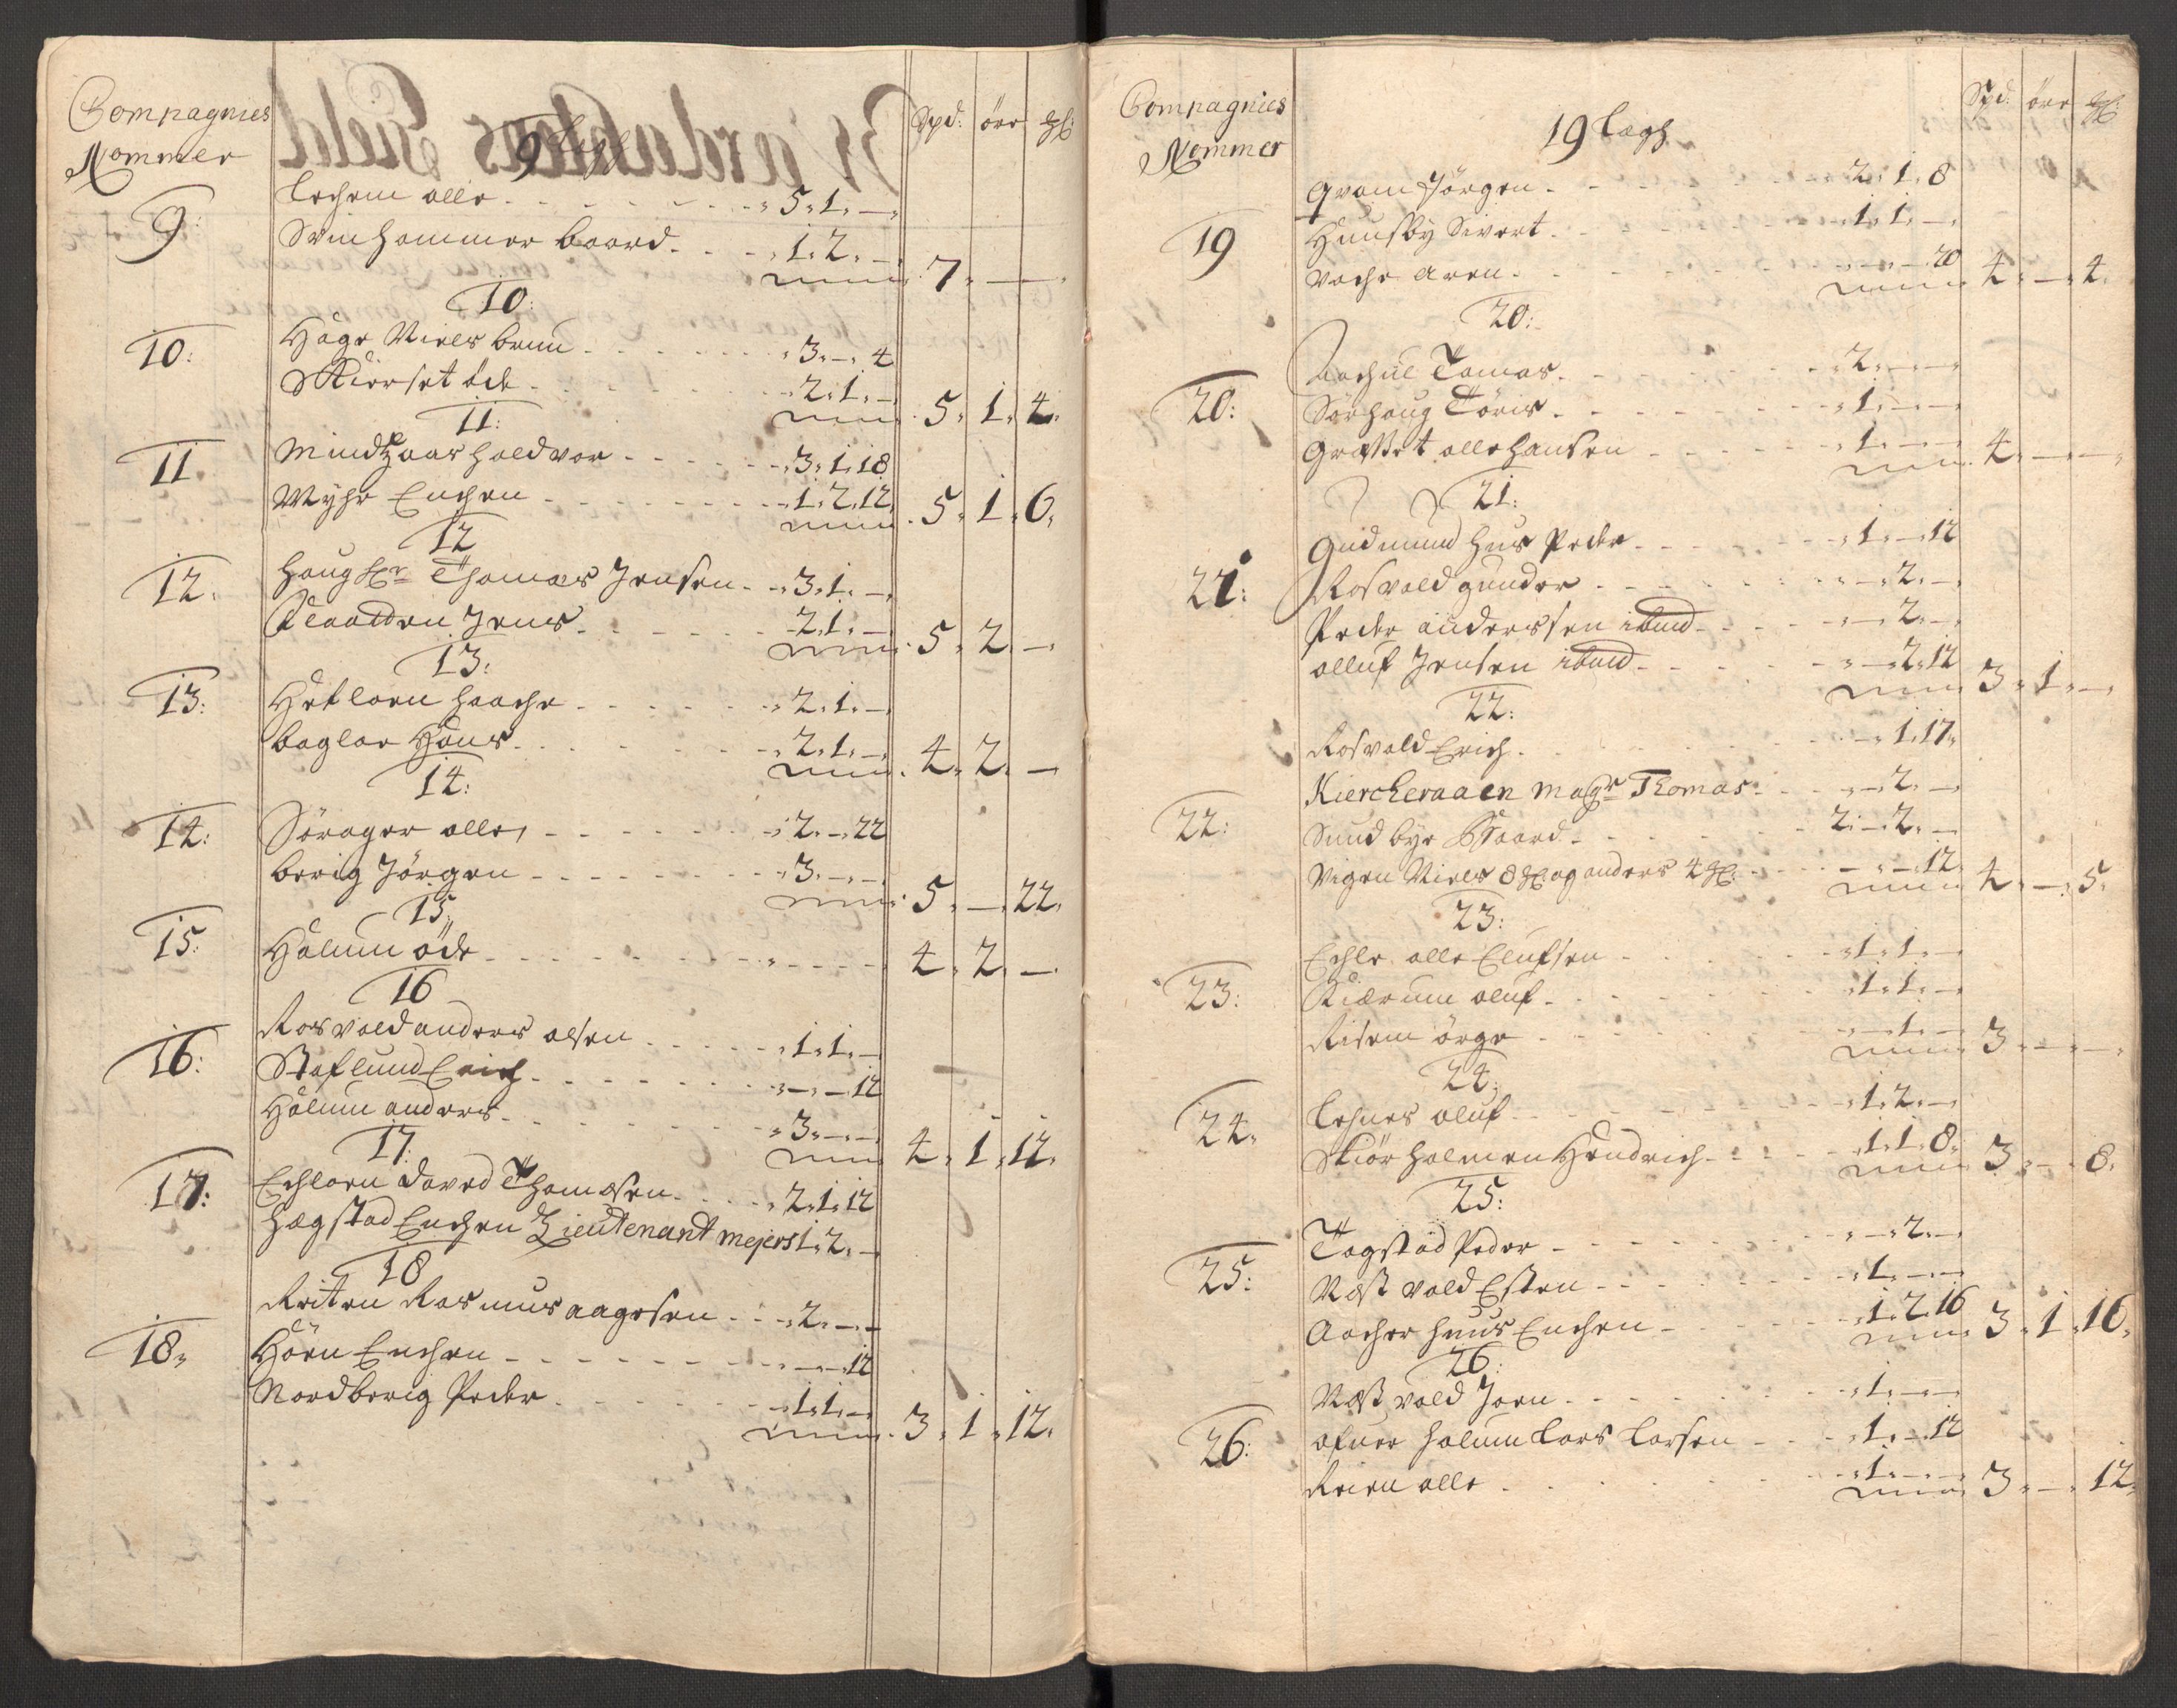 Compagnies
Nommer
9 lagh
Spd: öre
9:
Lechem olle 5. 1. —
Svinhammer baard 1. 2. —
7. — —
10:
10:
Hage Niels bruu 3. — 4
Skierset öde 2. 1. —
5. 1. 4.
11:
11
Mindtzaas haldvor 3. 1. 18
Myhr Enchen 1. 2. 12.
5. 1. 6.
12
12.
Haug Hr Thomas Jensen 3. 1. —
Jens 2. 1. —
5. 2. —
13:
13:
Hetloen haache 2. 1. —
baglar Hans 2. 1. —
4. 2. —
14:
14:
Sörager olle 2. — 22
berig Jörgen 3. — —
5. — 22.
15
15:
Halum öde
4. 2. —
16
16:
Rosvold anders olsen 1. 1. —
Staflund Erich — — 12
Halum anders 3. — —
4. 1. 12.
17:
17:
Echloen David Thomesen 2. 1. 12
Hagstad Enchen Lieutenant mejers 1. 2. —
18
18.
Reiten Rasmus aagesen 2. — —
Hörn Enchen — — 12
Nordberig Peder 1. 1. —
3. 1. 12.
Compagnies
Nommer
19 lagh
Spd: öre
Qvam Jörgen 2. 1. 8
19
Huusby Sivert 1. 1. —
Vache aren — — 20
4. — 4.
20:
20:
Tomas 2. — —
Sörhaug Töris 1. — —
Græsset olle hansen 1. — —
4. — —
21:
21:
Gudmund hus Peder 1. — 12
Rosvold gunder — 2. —
Peder anderssen ibid — 2. —
olluf Jensen ibid — 2. 12
3. 1. —
22:
Rosvold Erich — 1. 17.
Kiercheraaen magr Thomas — 2. —
22:
Sundbye Baard 2. — 2. —
Vigen Niels 8 og anders 4 — — 12.
4. — 5.
23:
Echle olle Elufsen 1. 1. —
23:
Kiærum oluf 1. 1. —
Risem örge — 1. —
3. — —
24:
24.
Lehnes oluf 1. 2. —
Skiörholmen Hendrich 1. 1. 8.
3. — 8.
25:
Togstad Peder — 2. —
25:
Næst vold Esten 1. — —
Aacher huus Enchen 1. 2. 16
3. 1. 16.
26:
Næst vold Joen 1. — —
26:
ofuer holum Lars Larsen 1. — 12
Reien olle 1. — —
3. — 12.